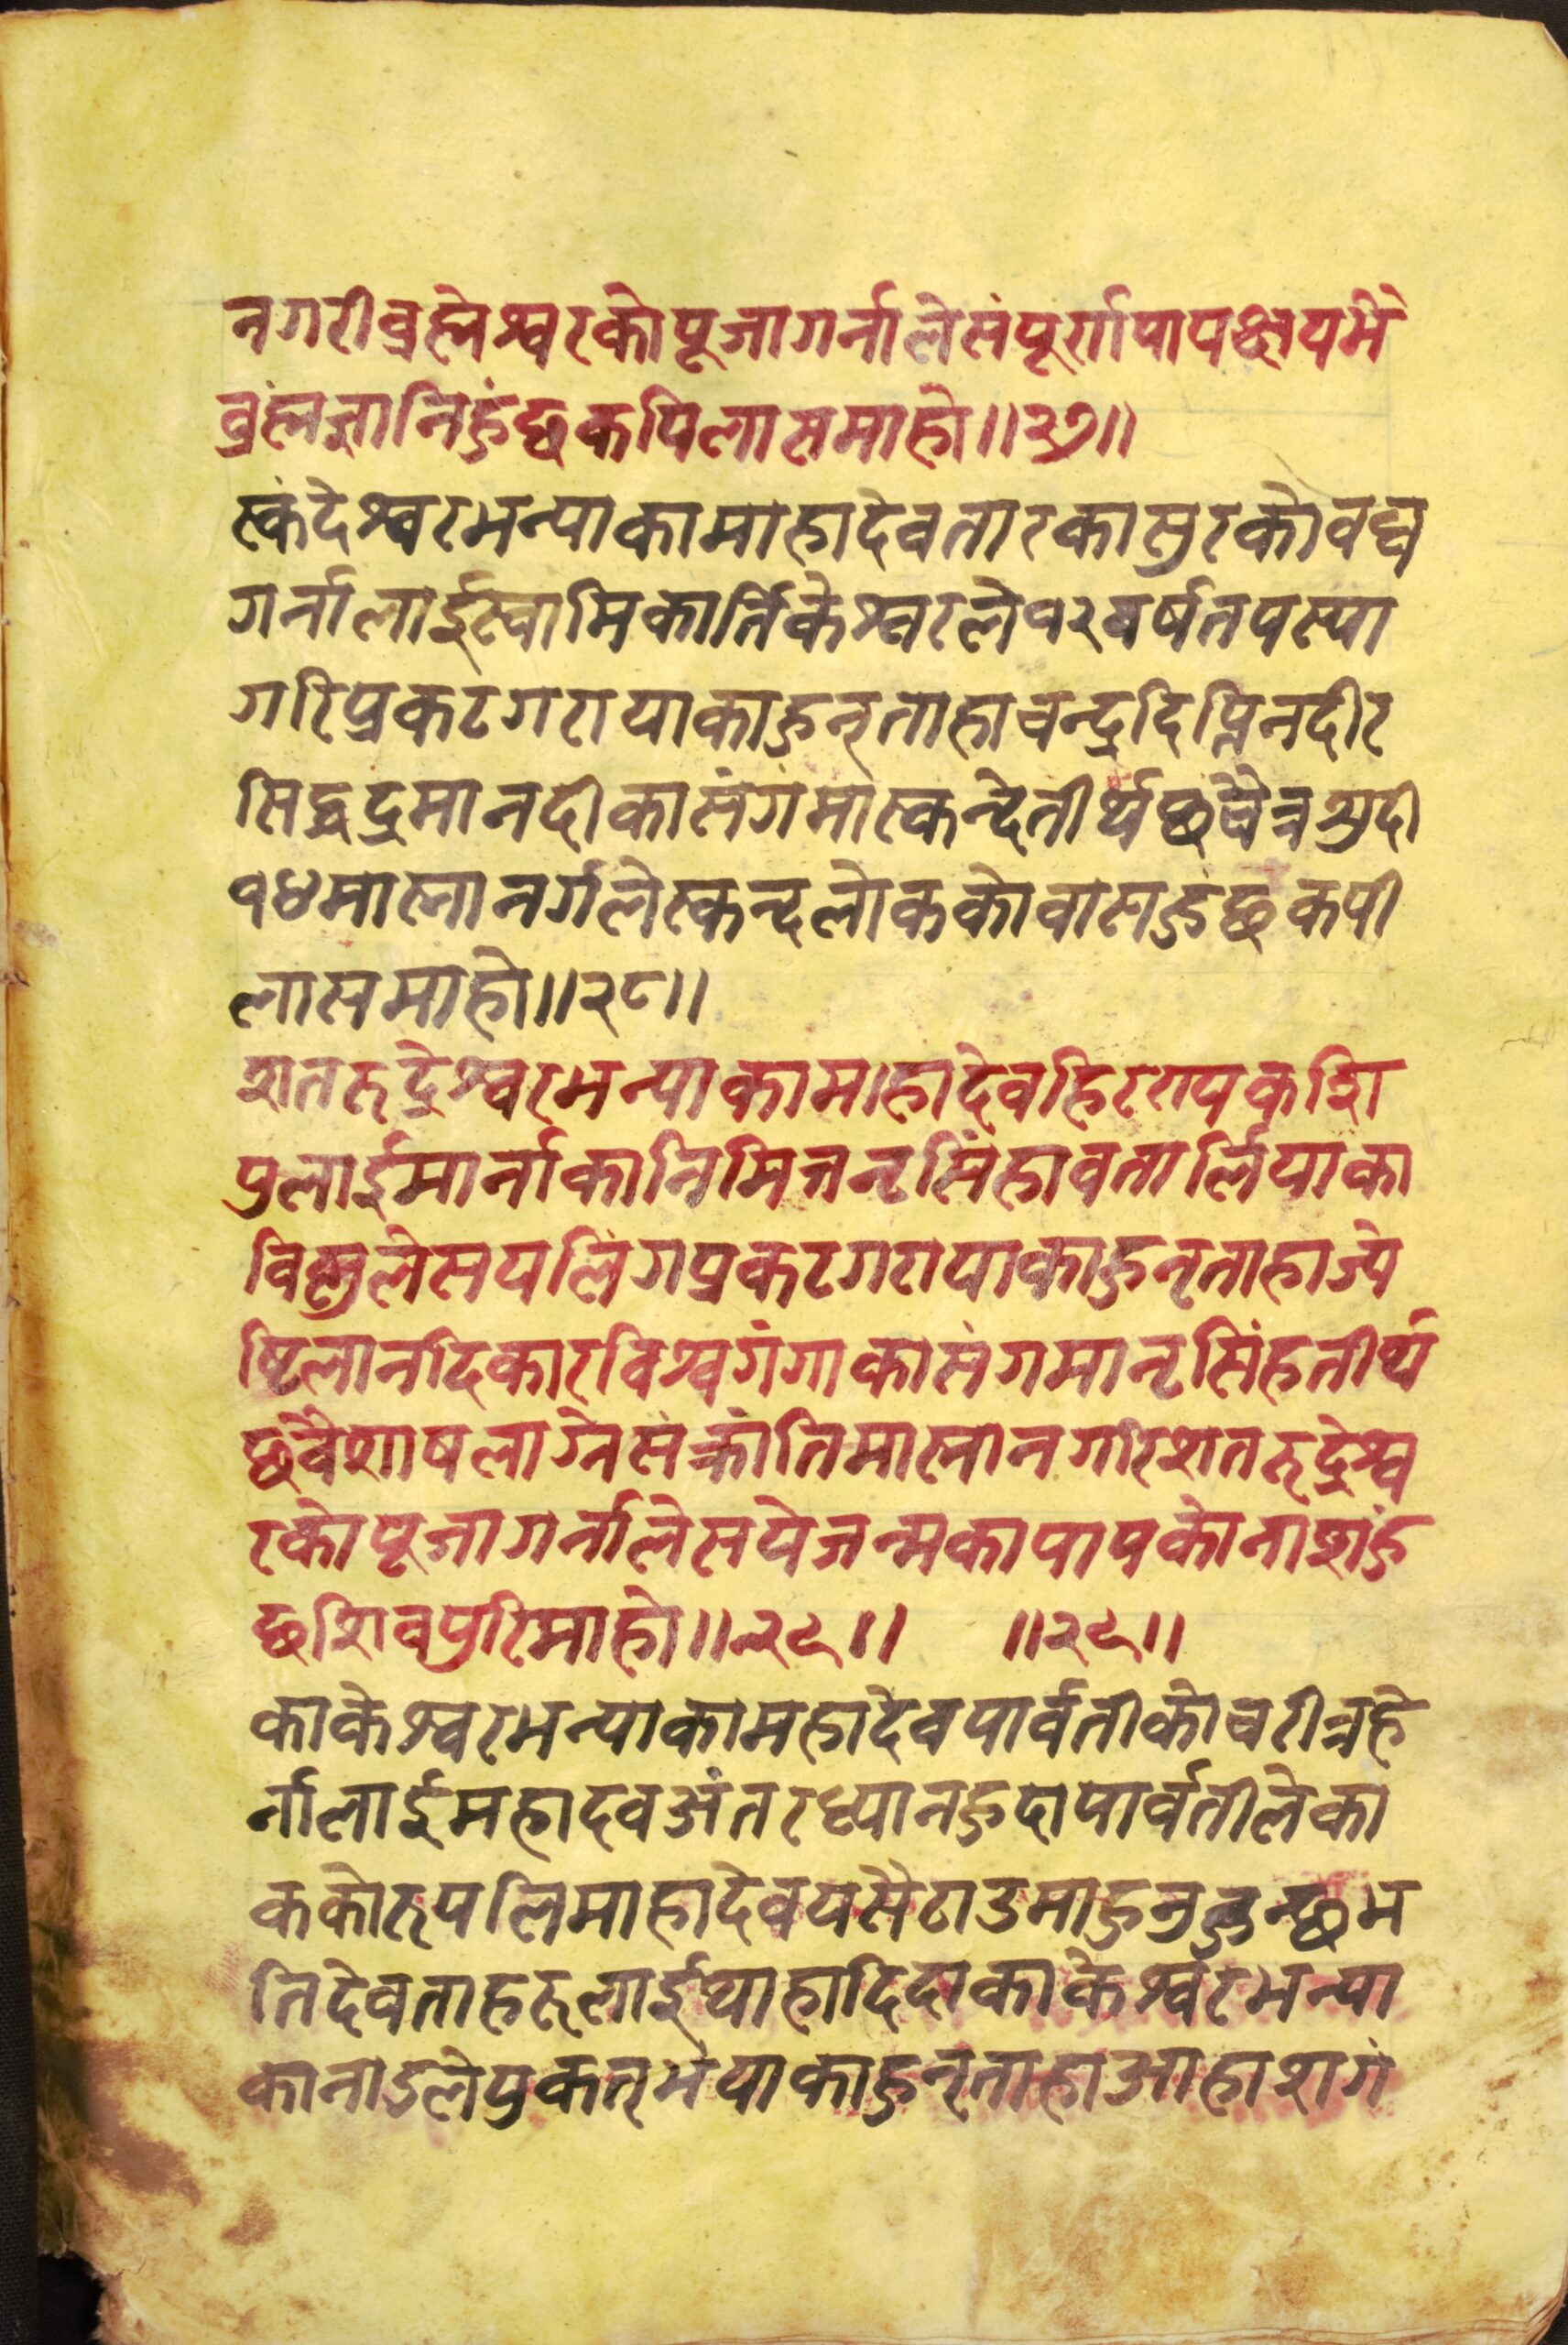 नगरीव्रह्मेश्वरकोपूजागर्नालेसंपूर्णापापक्षयभै
व्रंह्मज्ञानिहुंछकपिलासमाहो॥२७॥
स्कंदेश्वरभन्याकामाहादेवतारकासुरकोवध
गर्नालाईस्वामिकार्तिकेश्वरले१२वर्षतपस्या
गरिप्रकटगरायाकाहुन्ताहाचन्द्रदिप्तिनदीर
सिद्धद्रुमानदीकासंगंमास्कन्देतीर्थछचैत्रशुदी
१४मास्नानर्गलेस्कन्दलोककोवासहुंछकपी
लासमाहो॥२८॥
शतरुद्रेश्वरभन्याकामाहादेवहिरण्यकशि
पुलाईमार्नाकानिमित्तनृसिंहावतार्लियाका
विष्णुलेसयलिंगप्रकटगरायाकाहुन्ताहाज्ये
ष्टिलानदिकारविश्वगंगाकासंगमानृसिंहतीर्थ
छवैशाषलाग्नेसंक्रांतिमास्नानगरिशतरुद्रेश्व
रकोपूजागर्नालेसयेजन्मकापापकोनाशहुं
छशिवपुरिमाहो॥२९॥ ॥२९॥
काकेश्वरभन्याकामहादेवपार्वतीकोचरीत्रहे
र्नालाईमहादवअंतरध्यानहुदापार्वतीलेका
ककोरुपलिमाहादेवयसैठाउमाहुनुहुन्छभ
निदेवताहरूलाईथाहादिदाकाकेश्वरभन्या
कानाउलेप्रकत्भयाकाहुन्ताहाआहाशगं